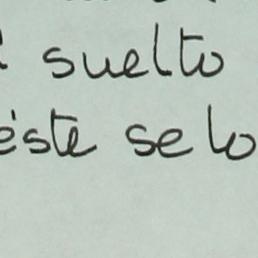 suelto
éste se lo